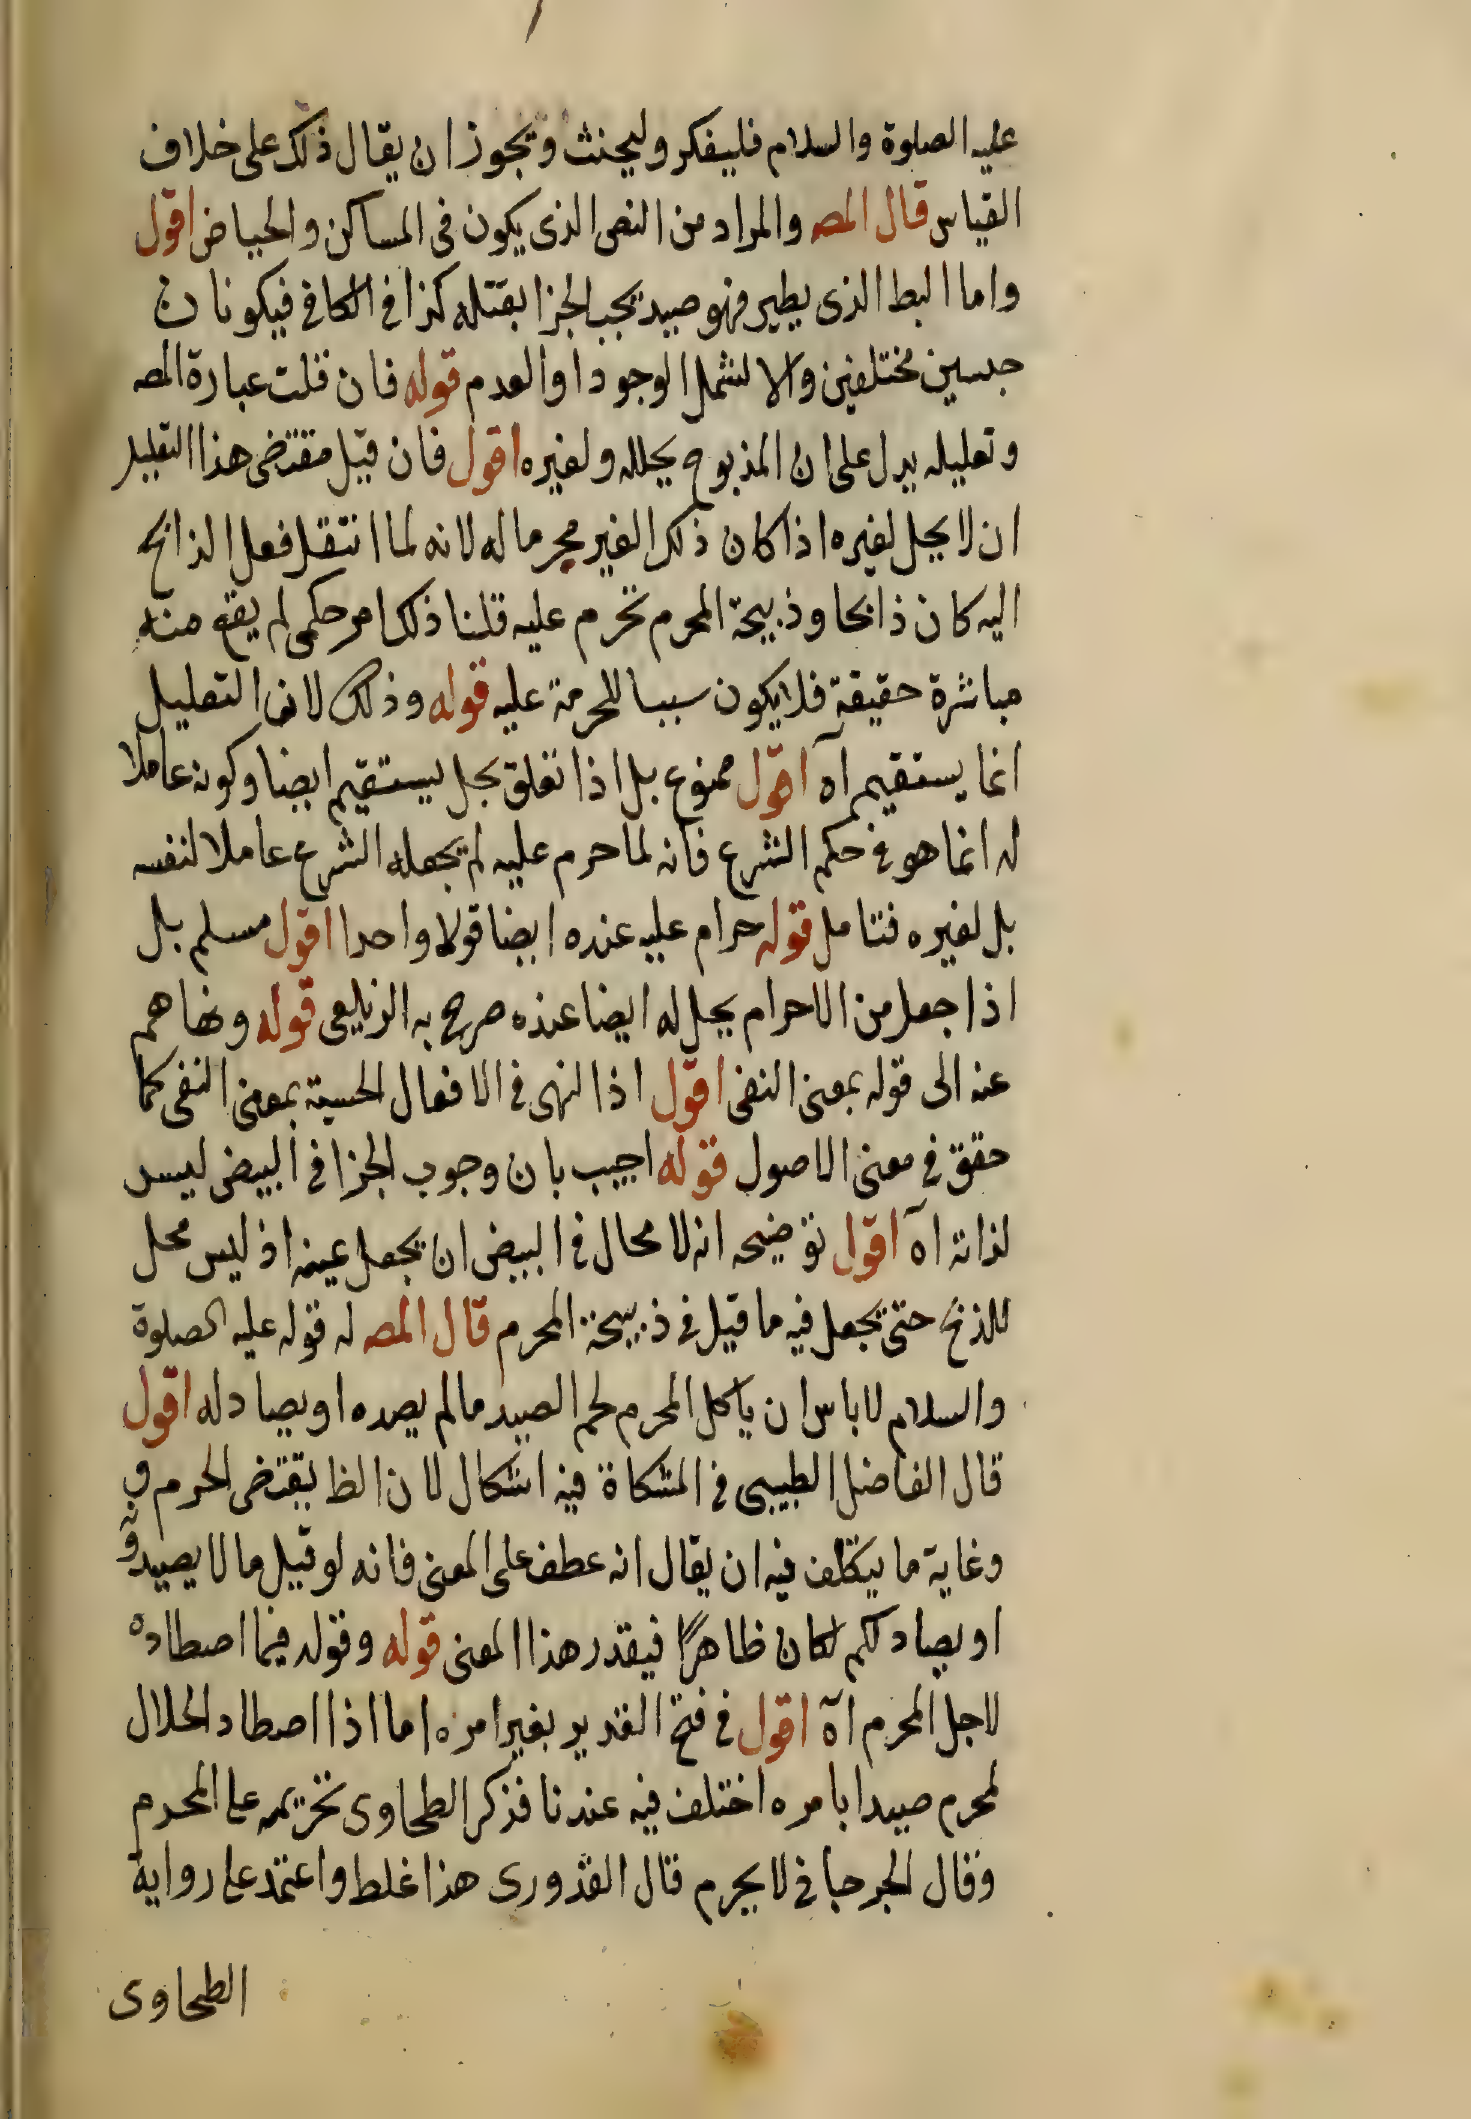 عليه الصلوة والسلام فليفكر وليحنث ويجوز ان يقال ذلك على خلاف
القياس قال المصـ والمراد من النص الذى يكون فى المساكن والحياض اقول
واما البط الذى يطير فهو صيد يجب الجزا بقتله كذا فى الكافى فيكونان
جنسين مختلفين والا لشمل الوجود او العدم قوله فان قلت عبارة المصـ
وتعليله يدل على ان المذبوح يحلله ولغيره اقول فان قيل مقتضى هذا التعليل
ان لا يحل لغيره اذا كان ذلك الغير محرما له لانه لما انتقل فعل الذابح
اليه كان ذابحا وذبيحة المحرم تحرم عليه قلنا ذلك امر حكمى لم يقع منه
مباشرة حقيقة فلا يكون سببا للحرمة عليه قوله وذلك لان التعليل
انما يستقيم آه اقول ممنوع بل اذا تعلق بحل يستقيم ايضا وكونه عاملا
له انما هو فى حكم الشرع فانه لما حرم عليه لم يجعله الشرع عاملا لنفسه
بل لغيره فتامل قوله حرام عليه عنده ايضا قولا واحدا اقول مسلم بل
اذا جعل من الاحرام يحل له ايضا عنده صرح به الزيلعى قوله ونهاهم
عنه الى قوله بمعنى النفى اقول اذ النهى فى الافعال الحسية بمعنى النفى كما
حقق فى معنى الاصول قوله اجيب بان وجوب الجزا فى البيض ليس
لذاته آه اقول توضيحه انه لا محال فى البيض ان يجعل عينه اذ ليس محل
للذبح حتى يجعل فيه ما قيل فى ذبيحة المحرم قال المصـ له قوله عليه الصلوة
والسلام لا باس ان ياكل المحرم لحم الصيد ما لم يصده او يصاد له اقول
قال الفاضل الطيبى فى المشكاة فيه اشكال لان الظ يقتضى الجزم
وغاية ما يتكلف فيه ان يقال انه عطف على المعنى فانه لو قيل ما لا يصيدونه
او يصاد لكم لكان ظاهرا فيقدر هذا المعنى قوله وقوله فيما اصطاده
لاجل المحرم آه اقول فى فتح القدير بغير امره اما اذا اصطاد الحلال
لمحرم صيدا بامره اختلف فيه عندنا فذكر الطحاوى تحريمه على المحرم
وقال الجرجانى لا يحرم قال القدورى هذا غلط واعتمد على رواية
الطحاوى